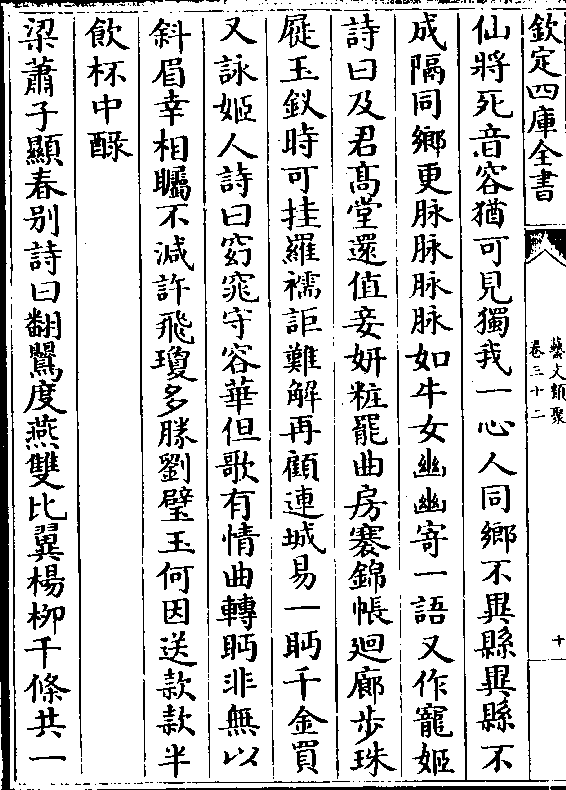 欽定四庫全書
藝文類聚
卷三十二
十
仙將死音容猶可見獨我一心人同鄉不異縣異縣不
成隔同鄉更脉脉脉脉如牛女幽幽寄一語又作寵姬
詩曰及君髙堂還值妾妍粧罷曲房褰錦帳廻廊步珠
屣玉釵時可挂羅襦詎難解再顧連城易一眄千金買
又詠姬人詩曰窈窕守容華但歌有情曲轉眄非無以
斜眉幸相矚不減許飛瓊多勝劉璧玉何因送款款半
飲杯中醁
梁蕭子顯春别詩曰翻鸎度燕雙比翼楊栁千條共一